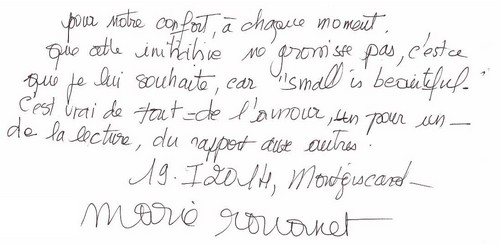 pour votre confort, à chaque moment.
que cette initiative ne grossisse pas, c'est ce
que je lui souhaite, car "small is beautiful."
C'est vrai de tout = de l'amour, un pour un –
de la lecture, du rapport aux autres.
19. I 2014, Montgiscard –
Marie Rouanet